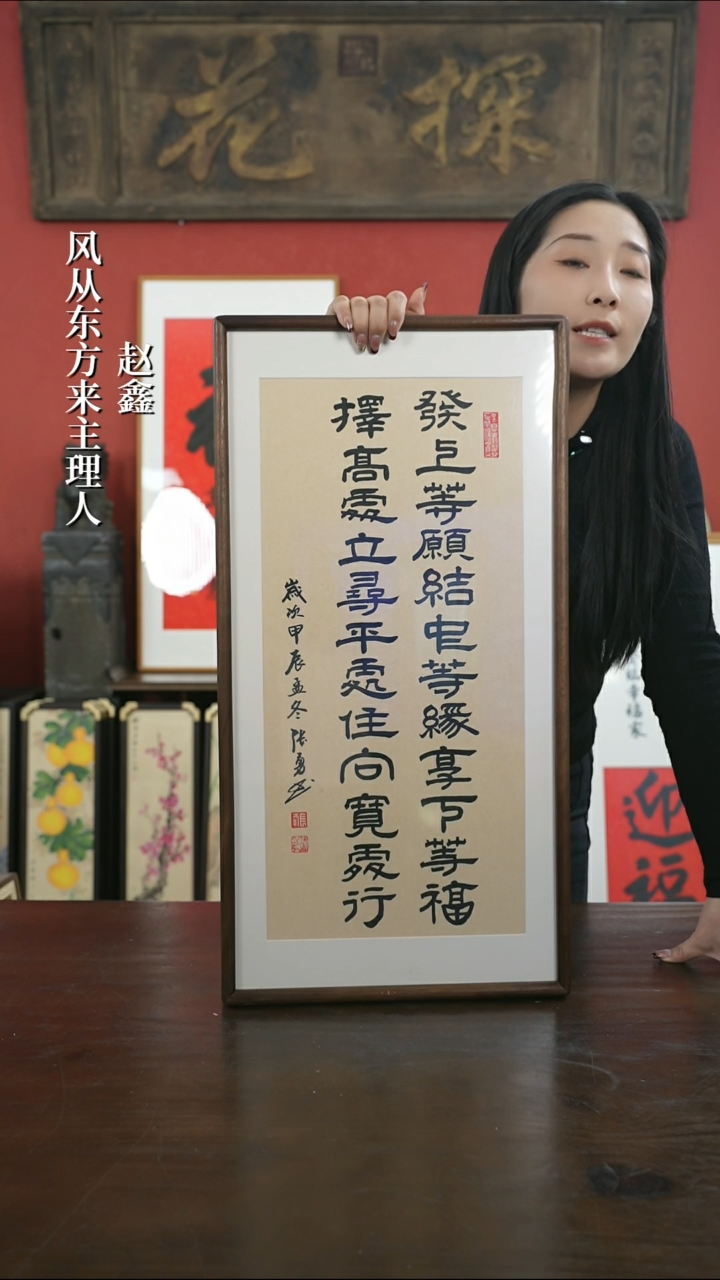 探花
赵鑫
风从东方来主理人
發上等願結中等緣享下等福
擇高處立尋平處住向寬處行
歲次甲辰孟冬张勇书
幸福家
迎福